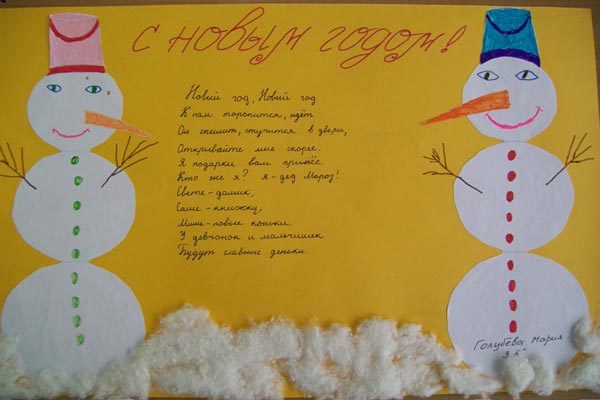 С НОВЫМ ГОДОМ!
Новый год, Новый год
К нам торопится, идёт
Он спешит, стучится в двери,
Открывайте мне скорее.
Я подарки вам принёс.
Кто же я? Я - дед Мороз!
Свете - домик,
Саше - книжку,
Мише - новые коньки.
У девчонок и мальчишек
Будут славные деньки.
Голубева Мария
3 "Б"